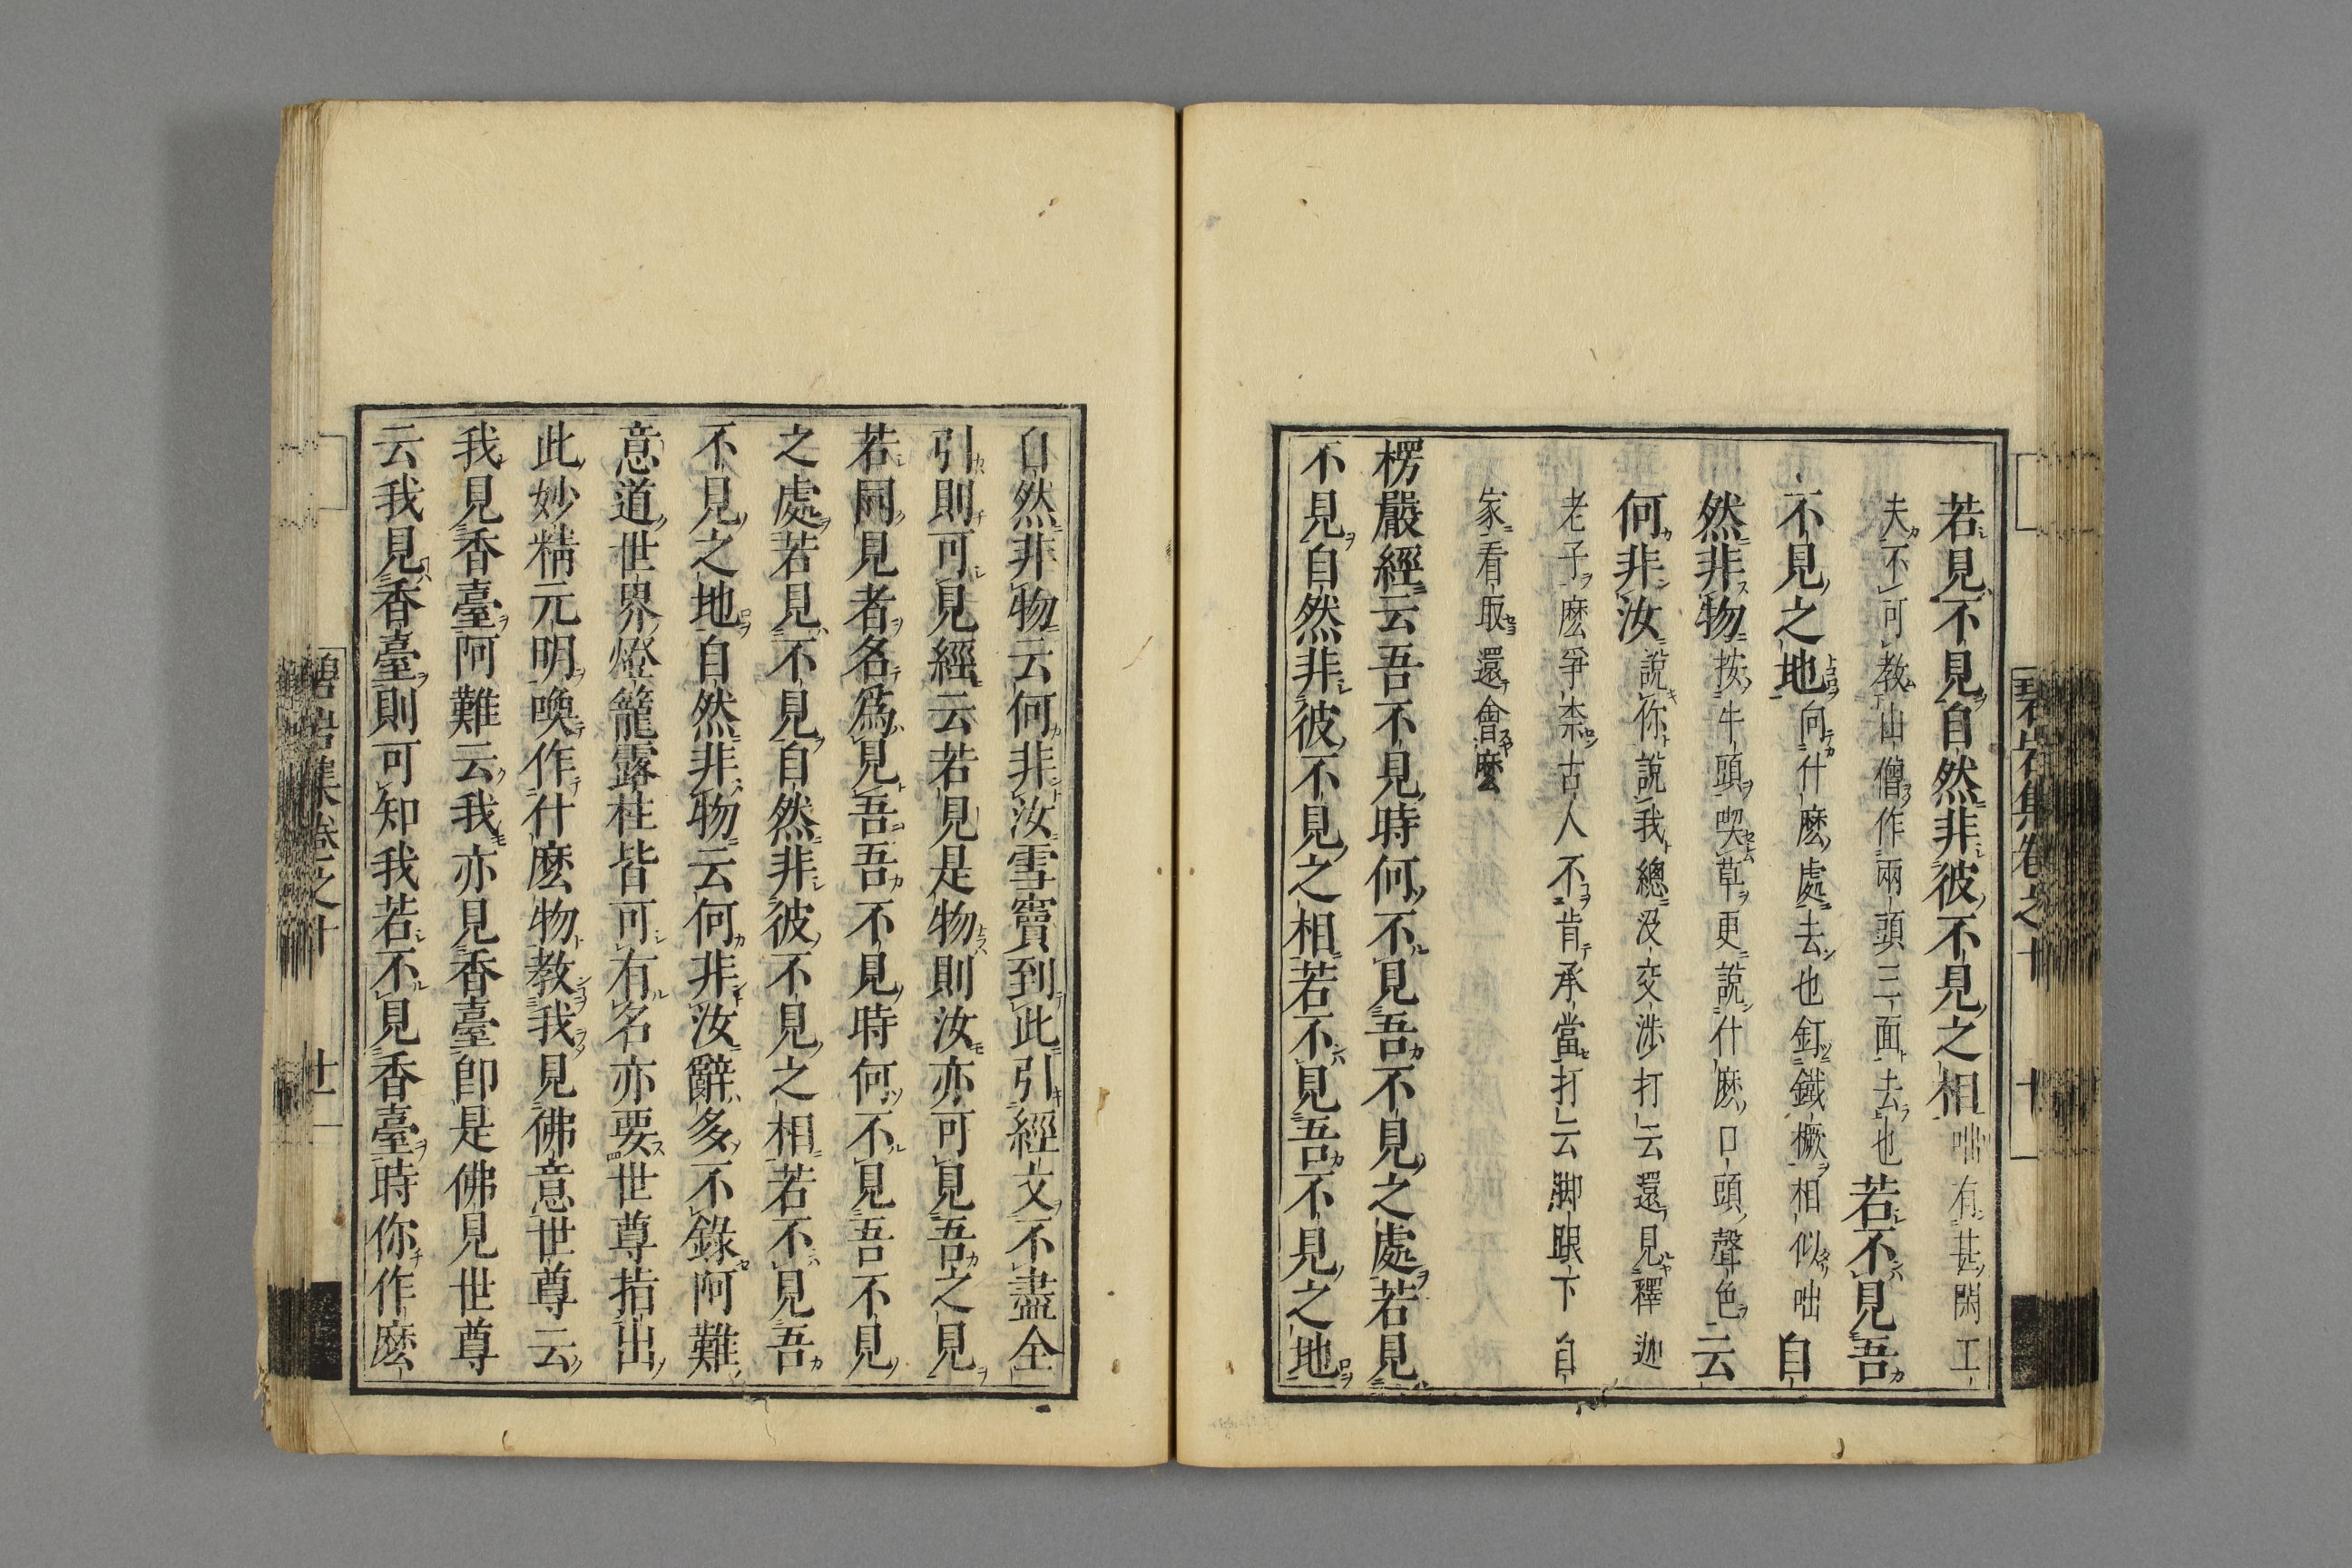 若見不見自然非彼不見之相咄有甚閑工
夫不可教山僧作兩頭三面去也若不見吾
不見之地向什麽處去也釘鐵橛相似咄自
然非物按牛頭喫草更說什麽口頭聲色云
何非汝說你說我總沒交涉打云還見釋迦
老子麽爭柰古人不肯承當打云脚跟下自
家看取還會麽
楞嚴經云吾不見時何不見吾不見之處若見
不見自然非彼不見之相若不見吾不見之地
自然非物云何非汝雪竇到此引經文不盡全
引則可見經云若見是物則汝亦可見吾之見
若同見者名爲見吾吾不見時何不見吾不見
之處若見不見自然非彼不見之相若不見吾
不見之地自然非物云何非汝辭多不錄阿難
意道世界燈籠露柱皆可有名亦要世尊指出
此妙精元明喚作什麽物教我見佛意世尊云
我見香臺阿難云我亦見香臺卽是佛見世尊
云我見香臺則可知我若不見香臺時你作麽
碧岩集卷之十 十
碧岩集卷之十 十一